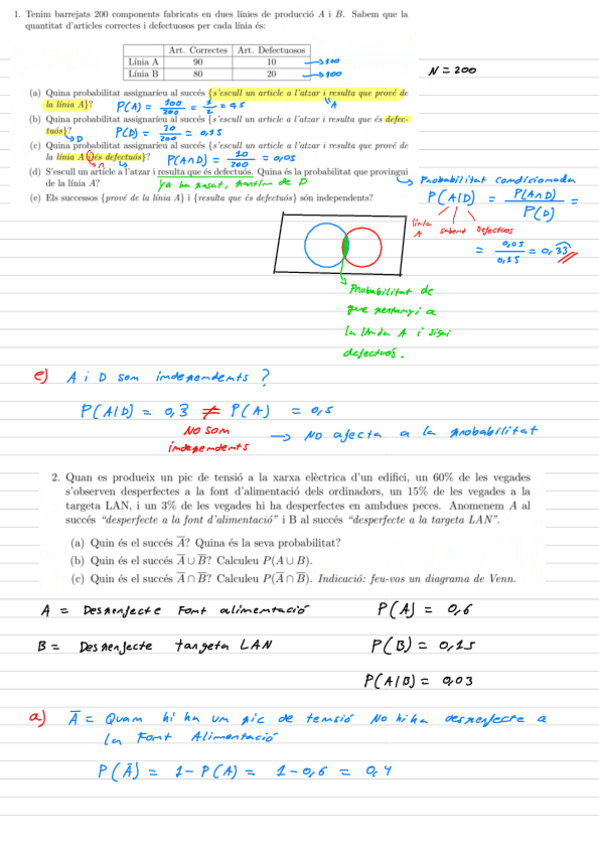 1. Tenim barrejats 200 components fabricats en dues línies de producció A i B. Sabem que la
quantitat d'articles correctes i defectuosos per cada línia és:
Art. Correctes Art. Defectuosos
Línia A 90 10 → 100
Línia B 80 20 → 100
N = 200
(a) Quina probabilitat assignaríeu al succés {s'escull un article a l'atzar i resulta que prové de
la línia A}? P(A) = 100/200 = 1/2 = 0,5 "A
(b) Quina probabilitat assignaríeu al succés {s'escull un article a l'atzar i resulta que és defec-
tuós}? → D P(D) = 30/200 = 0,15
(c) Quina probabilitat assignaríeu al succés {s'escull un article a l'atzar i resulta que prové de
la línia A i és defectuós}? P(A∩D) = 10/200 = 0,05
∩
(d) S'escull un article a l'atzar i resulta que és defectuós. Quina és la probabilitat que provingui
de la línia A? Ya ha pasat, D
→ Probabilitat condicionada
P(A|D) = P(A∩D)/P(D) =
línia A sabent Defectuos
= 0,05/0,15 = 0,33
(e) Els successos {prové de la línia A} i {resulta que és defectuós} són independents?
Probabilitat de
que pertanyi a
la línia A i sigui
defectuós.
e) A i D som independents ?
P(A|D) = 0,3 ≠ P(A) = 0,5
NO SOM
independents
→ NO afecta a la probabilitat
2. Quan es produeix un pic de tensió a la xarxa elèctrica d'un edifici, un 60% de les vegades
s'observen desperfectes a la font d'alimentació dels ordinadors, un 15% de les vegades a la
targeta LAN, i un 3% de les vegades hi ha desperfectes en ambdues peces. Anomenem A al
succés "desperfecte a la font d'alimentació" i B al succés "desperfecte a la targeta LAN".
(a) Quin és el succés A̅? Quina és la seva probabilitat?
(b) Quin és el succés A̅ ∪ B̅? Calculeu P(A ∪ B).
(c) Quin és el succés A̅ ∩ B̅? Calculeu P(A̅ ∩ B̅). Indicació: feu-vos un diagrama de Venn.
A = Desperfecte Font alimentació P(A) = 0,6
B = Desperfecte targeta LAN P(B) = 0,15
P(A|B) = 0,03
a) A̅ = Quan hi ha um pic de temsió No hi ha desperfecte a
la Font Alimentació
P(A̅) = 1-P(A) = 1-0,6 = 0,4